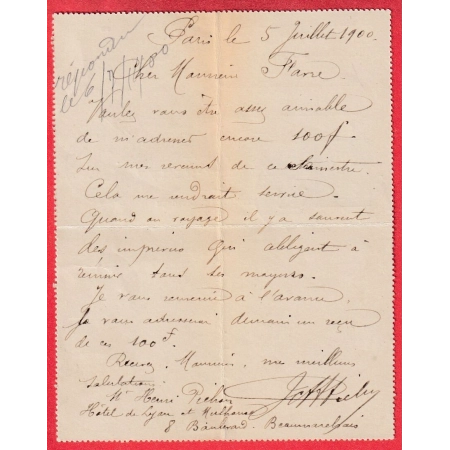 Paris le 5 Juillet 1900.
répondu
le 6/7/1900
Cher Monsieur Favre
Voulez vous être assez aimable
de m'adresser encore 100f
sur mes revenus de ce Semestre.
Cela me rendrait service.
Quand on voyage il y a souvent
des imprévus qui obligent à
réunir tous ses moyens.
Je vous remercie à l'avance,
Je vous adresserai demain un reçu
de ces 100f.
Recevez, Monsieur, mes meilleures
salutations
Mr Henri
Hôtel de Lyon et Mulhouse
8 Boulevard Beaumarchais